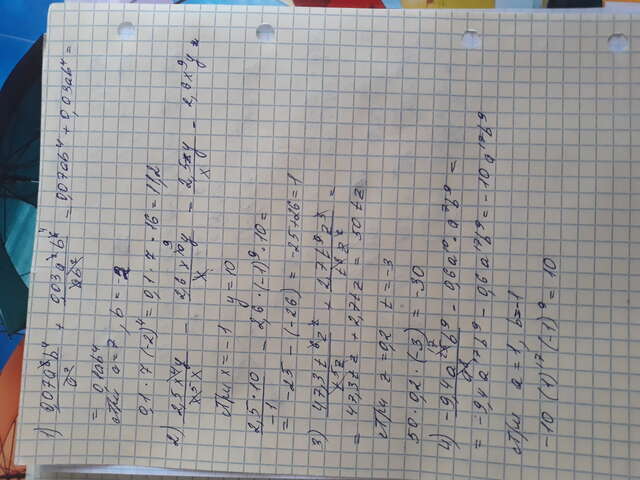 1) 0,07a³b⁴/a² + 0,03a²b⁶/ab² = 0,07ab⁴ + 0,03ab⁴ =
= 0,1ab⁴
При a=7, b=-2
0,1 · 7 (-2)⁴ = 0,1 · 7 · 16 = 11,2
2) 2,5x⁴y/x⁵x - 2,6x¹⁰y/x = 2,5xy/x - 2,6x⁹y =
При x=-1 y=10
2,5·10/-1 - 2,6·(-1)⁹·10=
= -25 - (-26) = -25+26=1
3) 47,3t⁶z²/t⁵z + 2,7t⁹z⁷/t⁸z⁶ =
= 47,3tz + 2,7tz = 50tz
При z=0,2 t=-3
50·0,2·(-3) = -30
4) -9,4a b⁹ - 0,6a¹⁰·a⁷b⁹ =
= -9,4a¹⁷b⁹ - 0,6a¹⁷b⁹ = -10a¹⁷b⁹
При a=1, b=-1
-10 (1)¹⁷ (-1)⁹ = 10